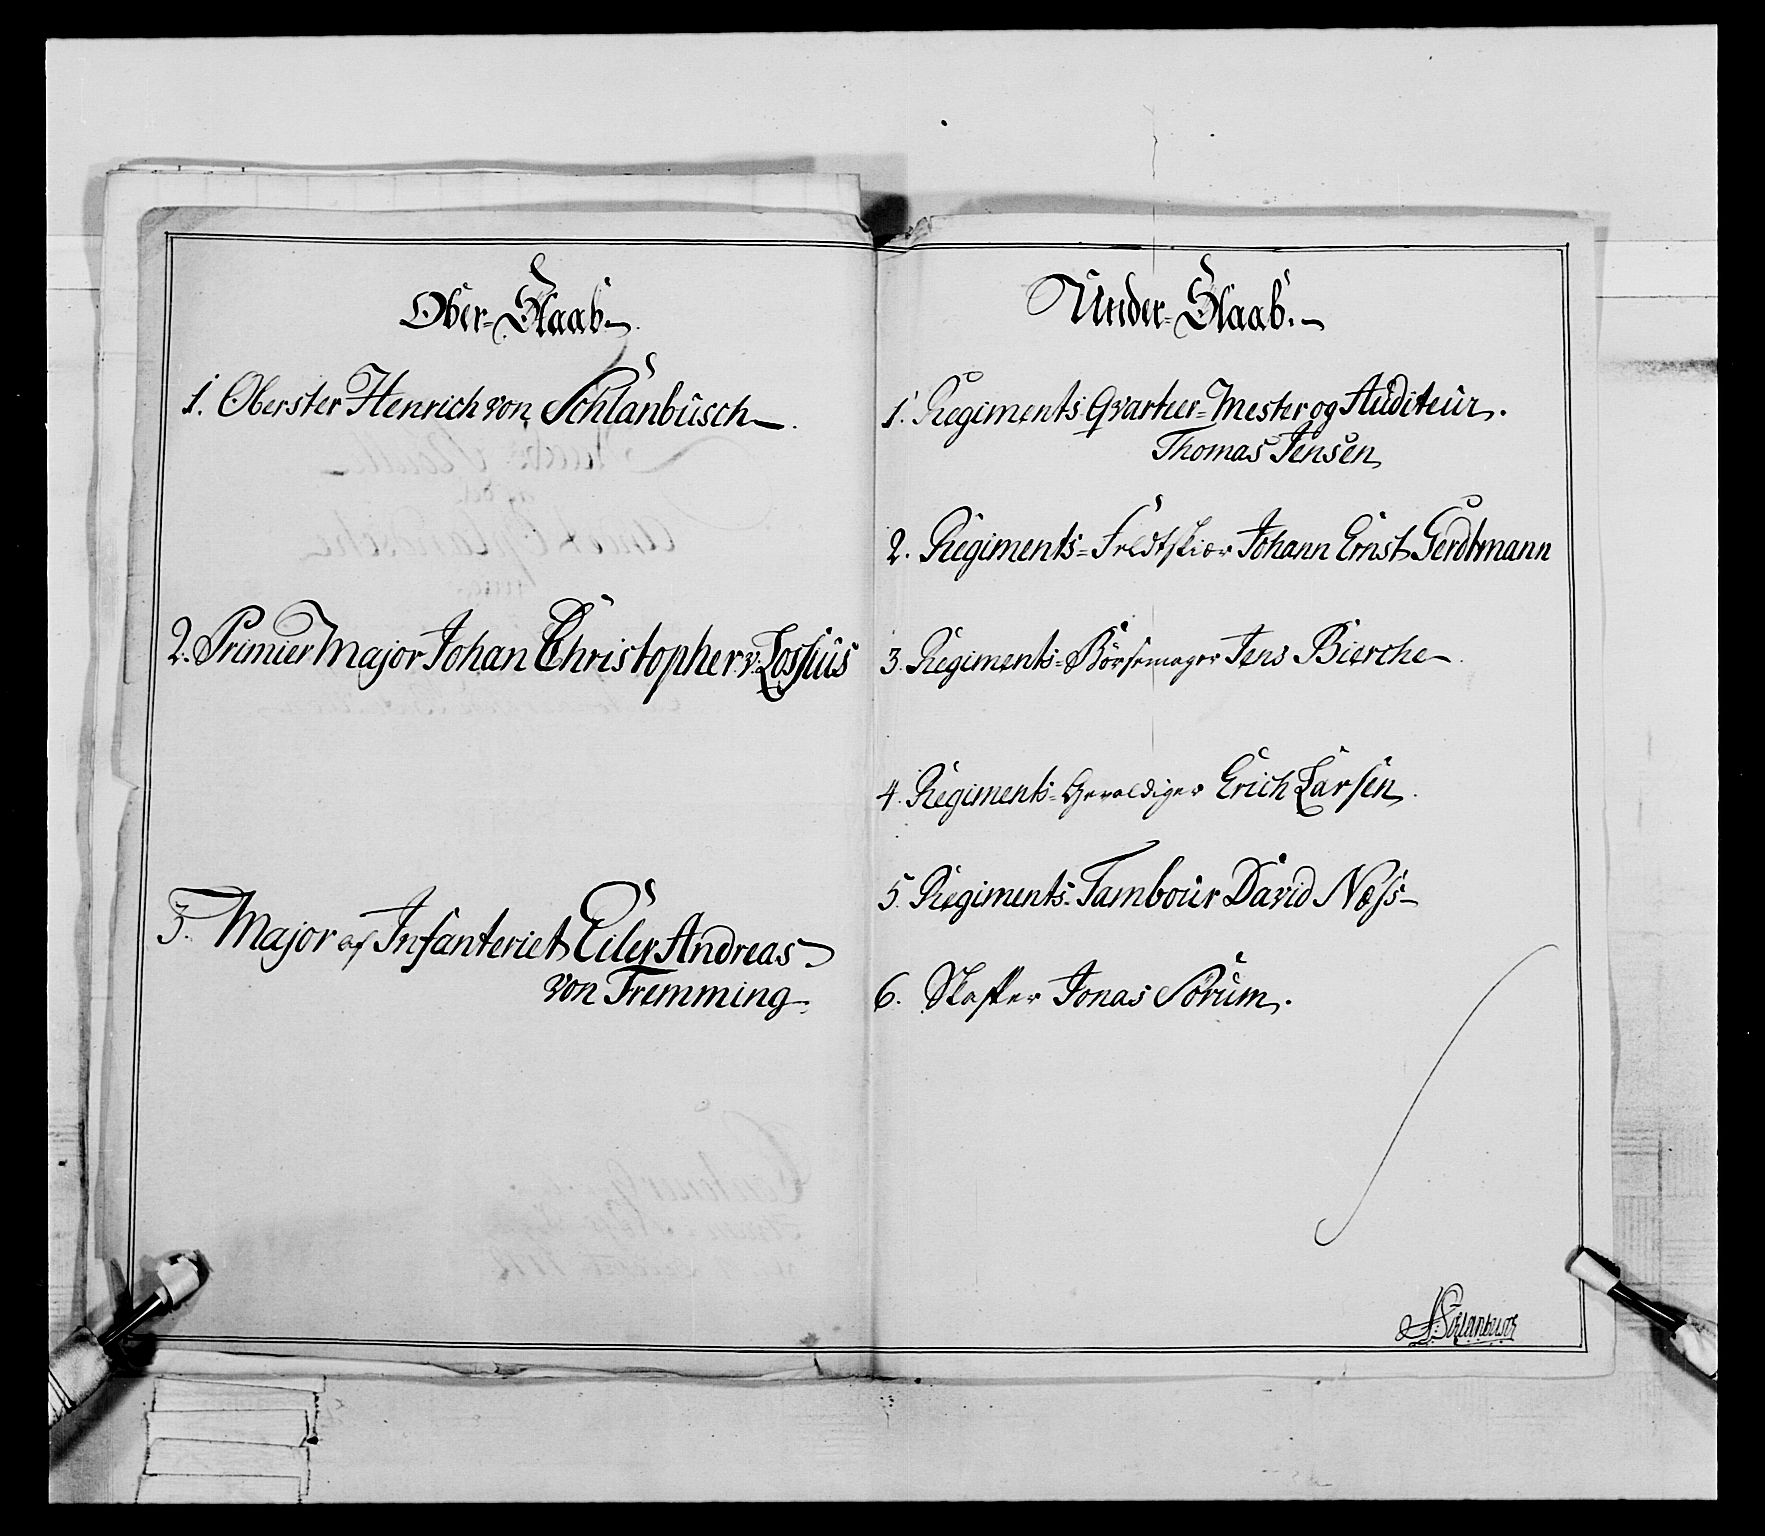 Ober-Staab.
1. Oberster Henrich von Schlanbusch
2. Primier Major Johan Christopher v. Lossius
3. Major af Infanteriet Eiler Andreas
von Tremming
Under-Staab.
1. Regiments Qvarteer-Mester og Auditeur.
Thomas Jensen
2. Regiments-Feldtskiær Johann Ernst Gerdtmann
3. Regiments-Börsemager Jens Bierche
4. Regiments-Gevaldiger Erich Larsen
5. Regiments-Tambour David Næss
6. Skaffer Jonas Sörum.
HSchlanbusch